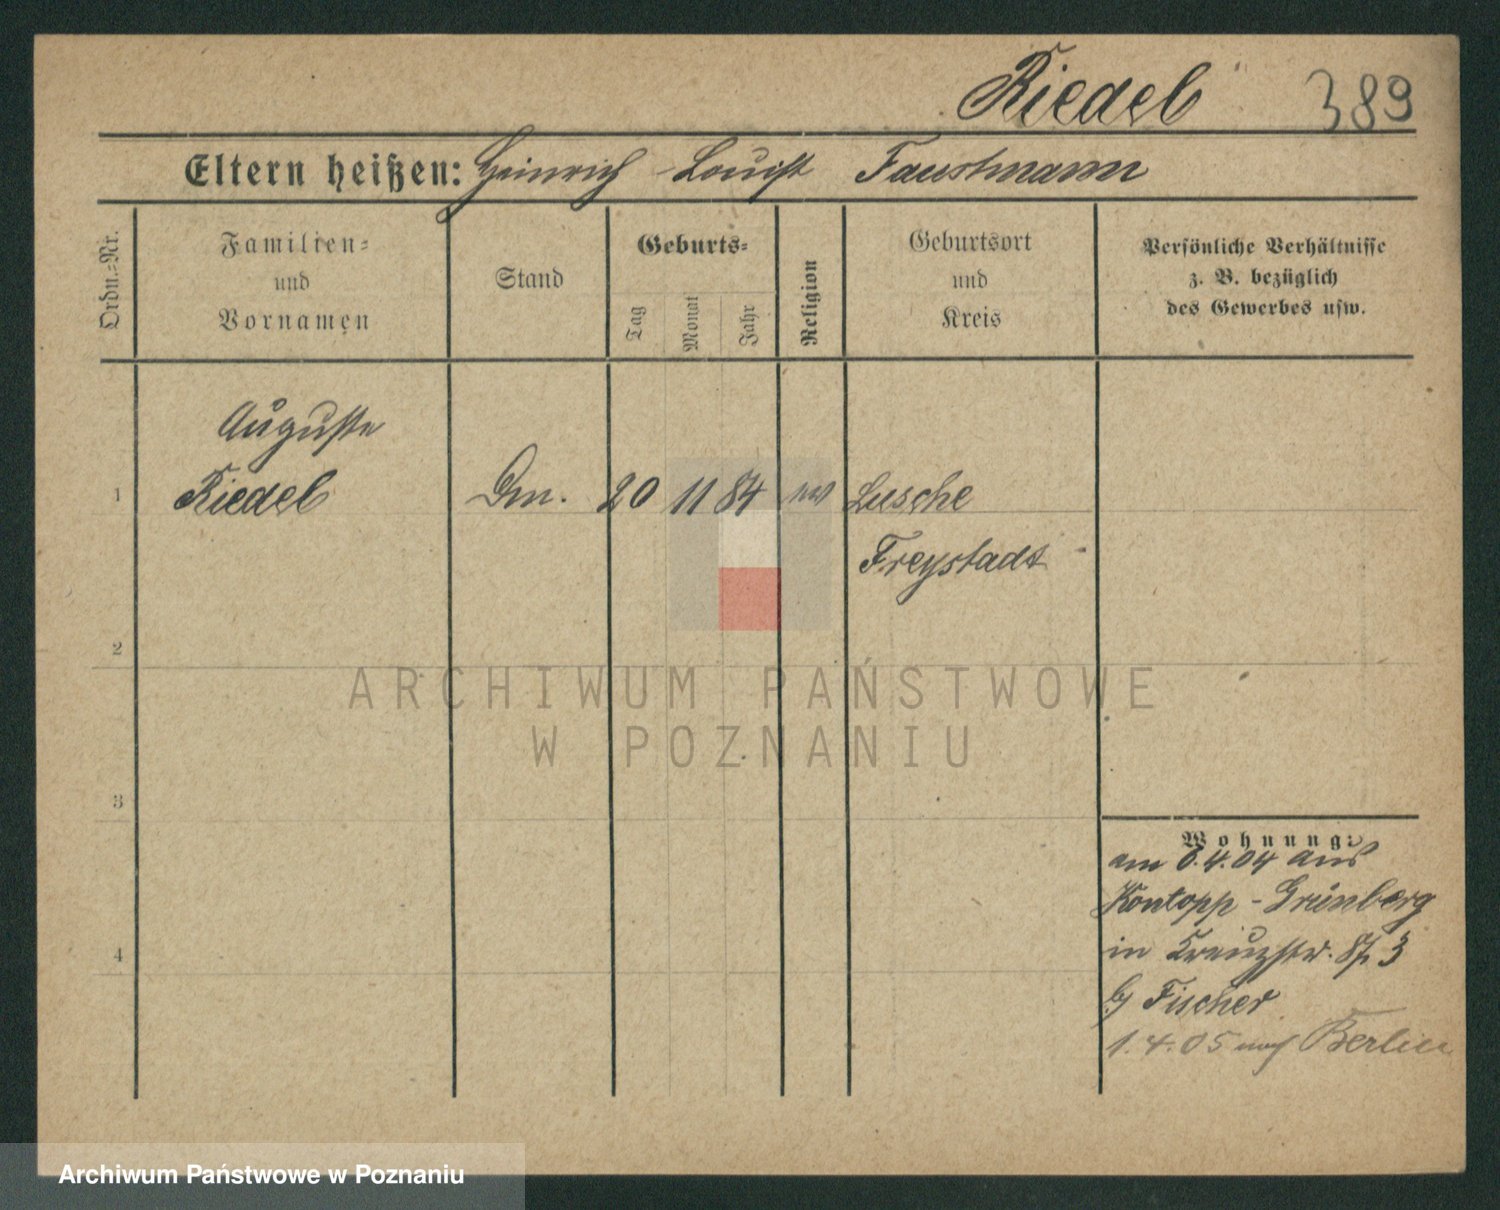 Riedel 389
Eltern heißen: Heinrich - Louise Faustmann
Ordn.=Nr.
Familien=
und
Vornamen
Stand
Geburts=
Tag
Monat
Jahr
Religion
Geburtsort
und
Kreis
Persönliche Verhältnisse
z. B. bezüglich
des Gewerbes usw.
Auguste
1 Riedel Dm. 20 11 84 ev Lusche
Freystadt
2
3
4
Wohnung:
am 6.4.04 aus
Kontopp - Grünberg
in Kreuzstr. 3
b/ Fischer
1.4.05 nach Berlin
ARCHIWUM PAŃSTWOWE
W POZNANIU
Archiwum Państwowe w Poznaniu